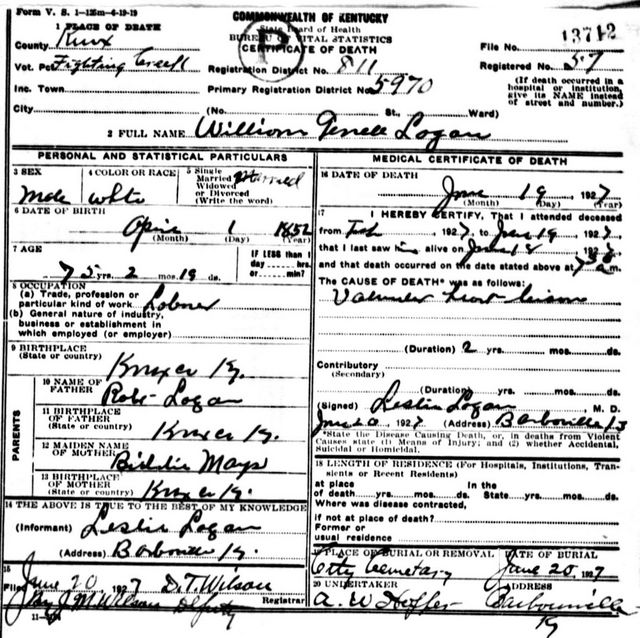 Form V. S. 1-125m-6-19-19
COMMONWEALTH OF KENTUCKY
State Board of Health
BUREAU OF VITAL STATISTICS
CERTIFICATE OF DEATH
1 PLACE OF DEATH
County Knox
Vot. Pct Fighting Creek
Inc. Town
City
P
File No. 13712
Registered No. 57
Registration District No. 811
Primary Registration District No. 5970
(If death occurred in a hospital or institution, give its NAME instead of street and number.)
(No. St., Ward)
2 FULL NAME William Logan
PERSONAL AND STATISTICAL PARTICULARS
3 SEX
Male
4 COLOR OR RACE
white
5 Single
Married
Widowed
or Divorced
(Write the word)
Married
6 DATE OF BIRTH
April 1 1852
(Month) (Day) (Year)
7 AGE
75 yrs. 2 mos. 18 ds.
IF LESS than 1
day ---- hrs.
or ---- min.?
8 OCCUPATION
(a) Trade, profession or
particular kind of work
(b) General nature of industry,
business or establishment in
which employed (or employer)
9 BIRTHPLACE
(State or country)
Knox Co Ky.
PARENTS
10 NAME OF
FATHER
Robt Logan
11 BIRTHPLACE
OF FATHER
(State or country)
Knox Co Ky.
12 MAIDEN NAME
OF MOTHER
Biddie Mays
13 BIRTHPLACE
OF MOTHER
(State or country)
Knox Co Ky.
14 THE ABOVE IS TRUE TO THE BEST OF MY KNOWLEDGE
(Informant) Leslie Logan
(Address) Barbourville Ky.
15
Filed June 20 1927 D.T. Wilson
Registrar
By J M Wilson Deputy
MEDICAL CERTIFICATE OF DEATH
16 DATE OF DEATH
June 19 1927
(Month) (Day) (Year)
17
I HEREBY CERTIFY, That I attended deceased
from Feb, 1927, to June 19 1927
that I last saw him alive on June 18 192
and that death occurred on the date stated above at m.
The CAUSE OF DEATH* was as follows:
Valvular heart lesion
(Duration) 2 yrs. mos. ds.
Contributory
(Secondary)
(Duration) yrs. mos. ds.
(Signed) Leslie Logan M. D.
June 20 1927 (Address) Barbourville Ky
*State the Disease Causing Death, or, in deaths from Violent
Causes state (1) Means of Injury; and (2) whether Accidental,
Suicidal or Homicidal.
18 LENGTH OF RESIDENCE (For Hospitals, Institutions, Transients or Recent Residents)
at place In the
of death yrs. mos. ds. State yrs. mos. ds.
Where was disease contracted,
if not at place of death?
Former or
usual residence
19 PLACE OF BURIAL OR REMOVAL
City Cemetary
DATE OF BURIAL
June 20, 1927
20 UNDERTAKER
A W Hopper
ADDRESS
Barbourville
Ky